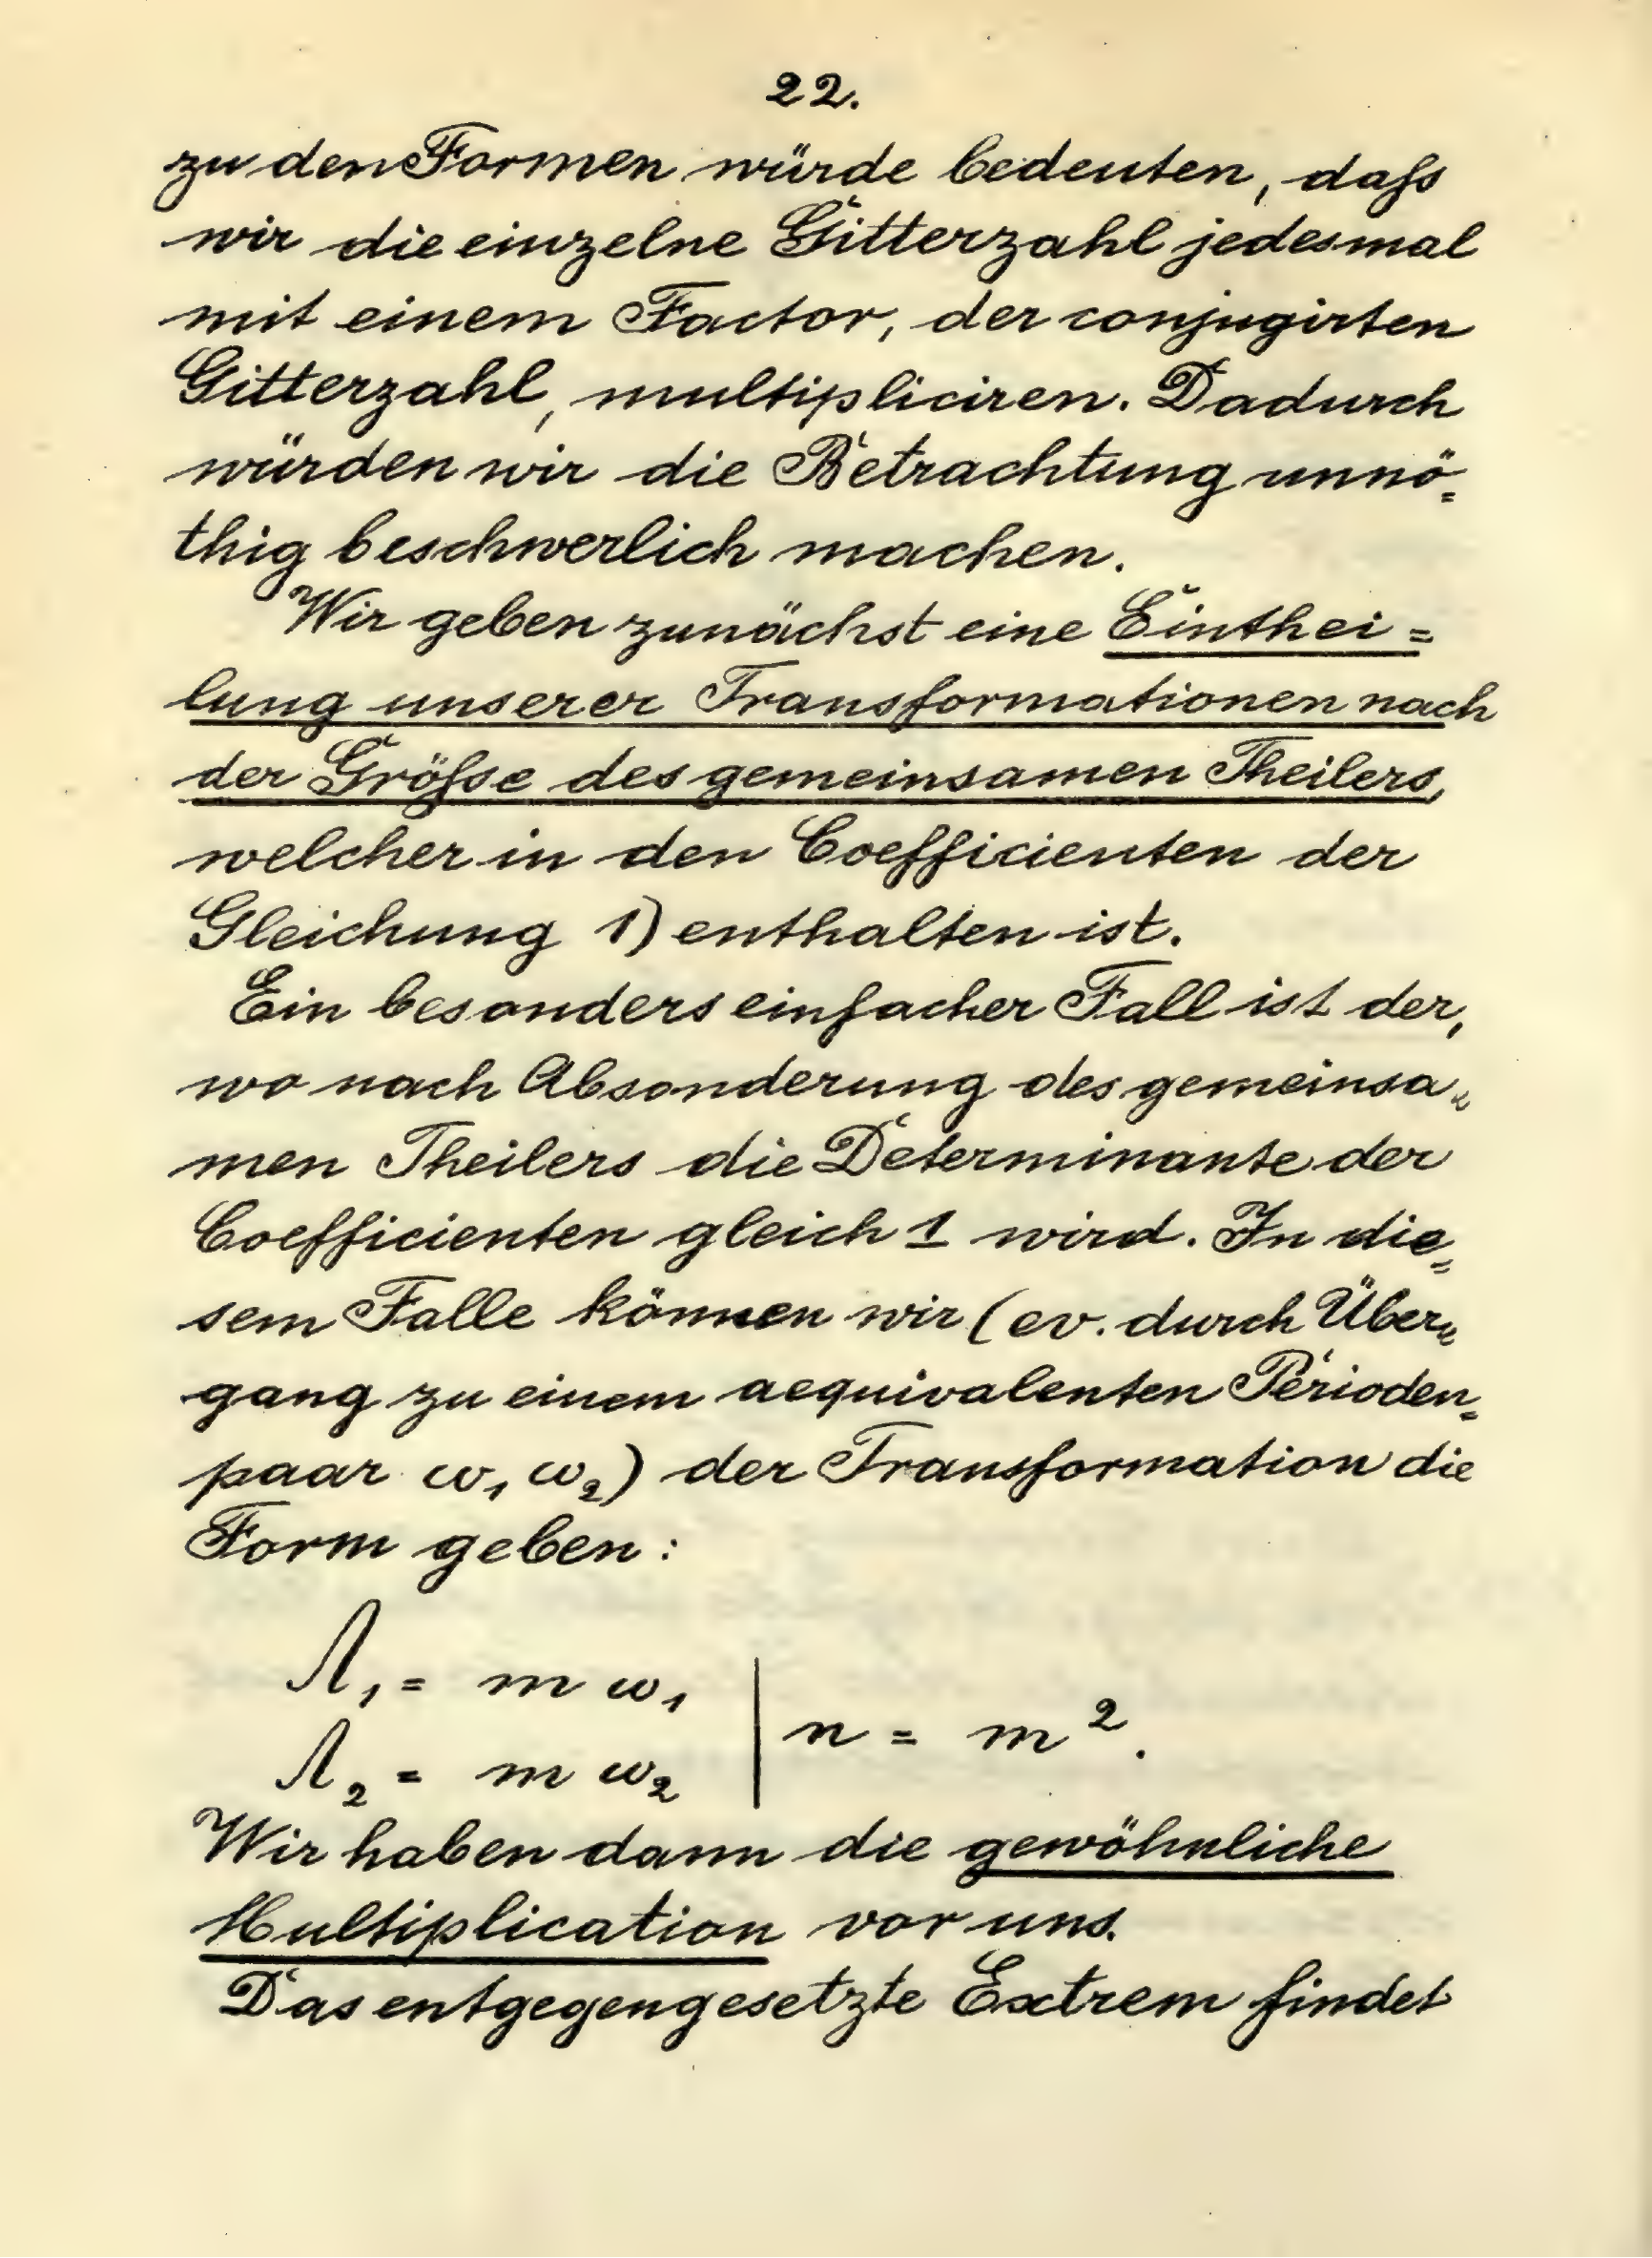 22.
zu den Formen würde bedeuten, daſs
wir die einzelne Gitterzahl jedesmal
mit einem Factor, der conjugirten
Gitterzahl, multipliciren. Dadurch
würden wir die Betrachtung unnö=
thig beschwerlich machen.
Wir geben zunächst eine Einthei=
lung unserer Transformationen nach
der Gröſse des gemeinsamen Theilers,
welcher in den Coefficienten der
Gleichung 1) enthalten ist.
Ein besonders einfacher Fall ist der,
wo nach Absonderung des gemeinsa=
men Theilers die Determinante der
Coefficienten gleich 1 wird. In die=
sem Falle können wir (ev. durch Über=
gang zu einem aequivalenten Perioden=
paar ω₁ ω₂) der Transformation die
Form geben:
Λ₁ = m ω₁
Λ₂ = m ω₂ | n = m².
Wir haben dann die gewöhnliche
Multiplication vor uns.
Das entgegengesetzte Extrem findet